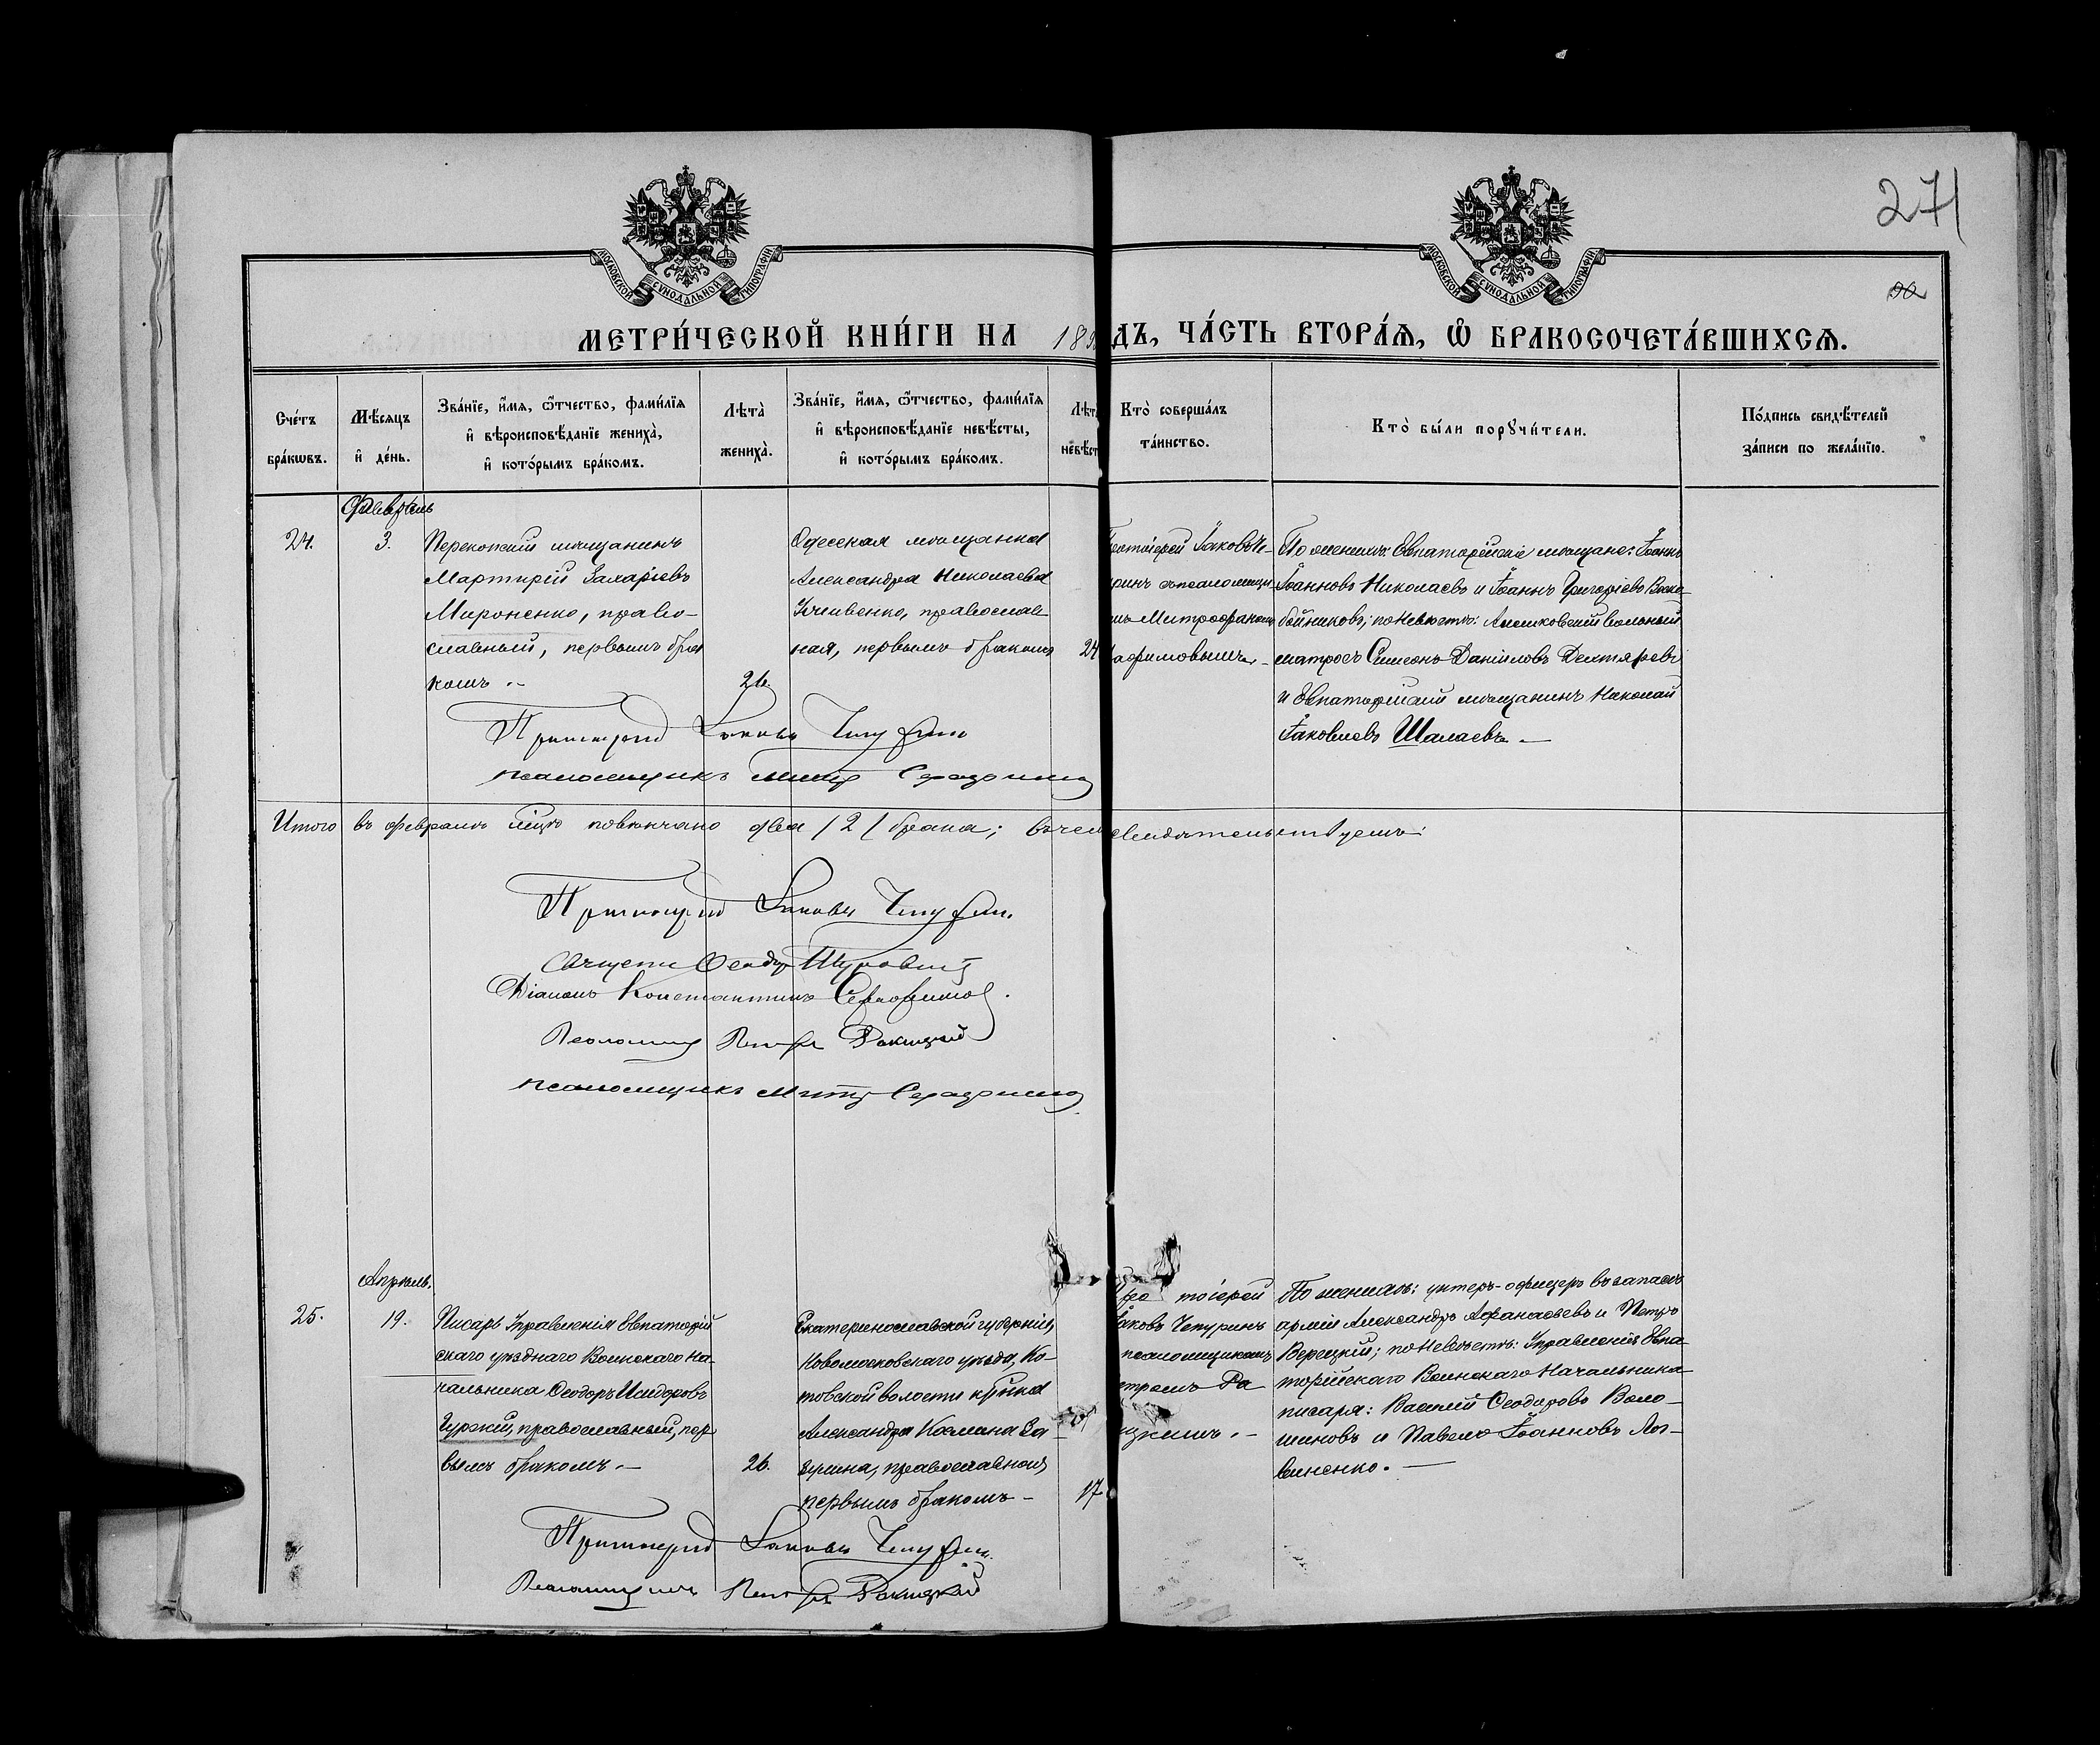 271
МОСКОВСКОЙ СѴНОДАЛЬНОЙ ТИПОГРАФІИ
МОСКОВСКОЙ СѴНОДАЛЬНОЙ ТИПОГРАФІИ
90
МЕТРИ́ЧЕСКОЙ КНИ́ГИ НА 189 ДЪ, ЧА́СТЬ ВТОРА́Ѧ, Ѽ БРАКОСОЧЕТА́ВШИХСѦ.
Сче́тъ бра́кѡвъ.
Мѣ́сяцъ и҆ де́нь.
Зва́нїе, и҆́мѧ, ѻ҆́тчество, фами́лїѧ
и҆ вѣроисповѣ́данїе жениха̀,
и҆ кото́рымъ бра́комъ.
Лѣта̀ жениха̀.
Зва́нїе, и҆́мѧ, ѻ҆́тчество, фами́лїѧ
и҆ вѣроисповѣ́данїе невѣ́сты,
и҆ кото́рымъ бра́комъ.
Лѣт невѣ́ст
Кто̀ соверша́лъ та́инство.
Кто̀ бы́ли порꙋчи́тели.
По́дпись свидѣ́телей за́писи по жела́нїю.
Февраль
24.
3.
Перекопскій мѣщанинъ
Мартирій Захаріевъ
Мироненко, право-
славный, первымъ бра
комъ.-
26.
Одесская мѣщанка
Александра Николаева
православ
ная, первымъ бракомъ
24
ротоіерей Іаковъ Че-
ринъ съ псаломщи
мъ Митрофаномъ
афимовымъ.-
По женихѣ: Евпаторійскіе мѣщане: Іоаннъ
Іоанновъ Николаевъ и Іоаннъ Григоріевъ
бойниковъ; по невѣстѣ: вольный
матросъ Симеонъ Даніиловъ Дехтяревъ
и Евпаторійскій мѣщанинъ Николай
Іаковлевъ Шалаевъ.-
Протоіерей Іаковъ Чепуринъ
псаломщикъ Митр Серафимов
Итого въ февралѣ мѣцѣ повѣнчано два /2/ брака; въ чем свидѣтельствуемъ:
Протоіерей Іаковъ Чепуринъ.
Священ Ѳеодор
Діаконъ Константинъ Серафимов.
Псаломщ Петръ Ракицкій
псаломщикъ Митр Серафимов
Апрѣль.
25.
19.
Писарь Управленія Евпаторій
скаго уѣзднаго Воинскаго На-
чальника Ѳеодоръ Исидоровъ
православный, пер
вымъ бракомъ.-
26.
Екатеринославской губерніи,
Новомосковскаго уѣзда, Ко-
товской волости кр̃нка
Александра Космина За-
православная,
первымъ бракомъ-
17
Про тоіерей
Іаковъ Чепуринъ
псаломщикомъ
етромъ Ра
ицкимъ.-
По женихѣ: унтеръ-офицеръ въ запасѣ
арміи Александръ Аѳанасьевъ и Петръ
Верецкій; по невѣстѣ: Управленія Евпа
торійскаго Воинскаго Начальника
писаря: Василій Ѳеодоровъ Воло-
шиновъ и Павелъ Іоанновъ Лог-
виненко.-
Протоіерей Іаковъ Чепуринъ.
Псаломщикъ Петръ Ракицкій